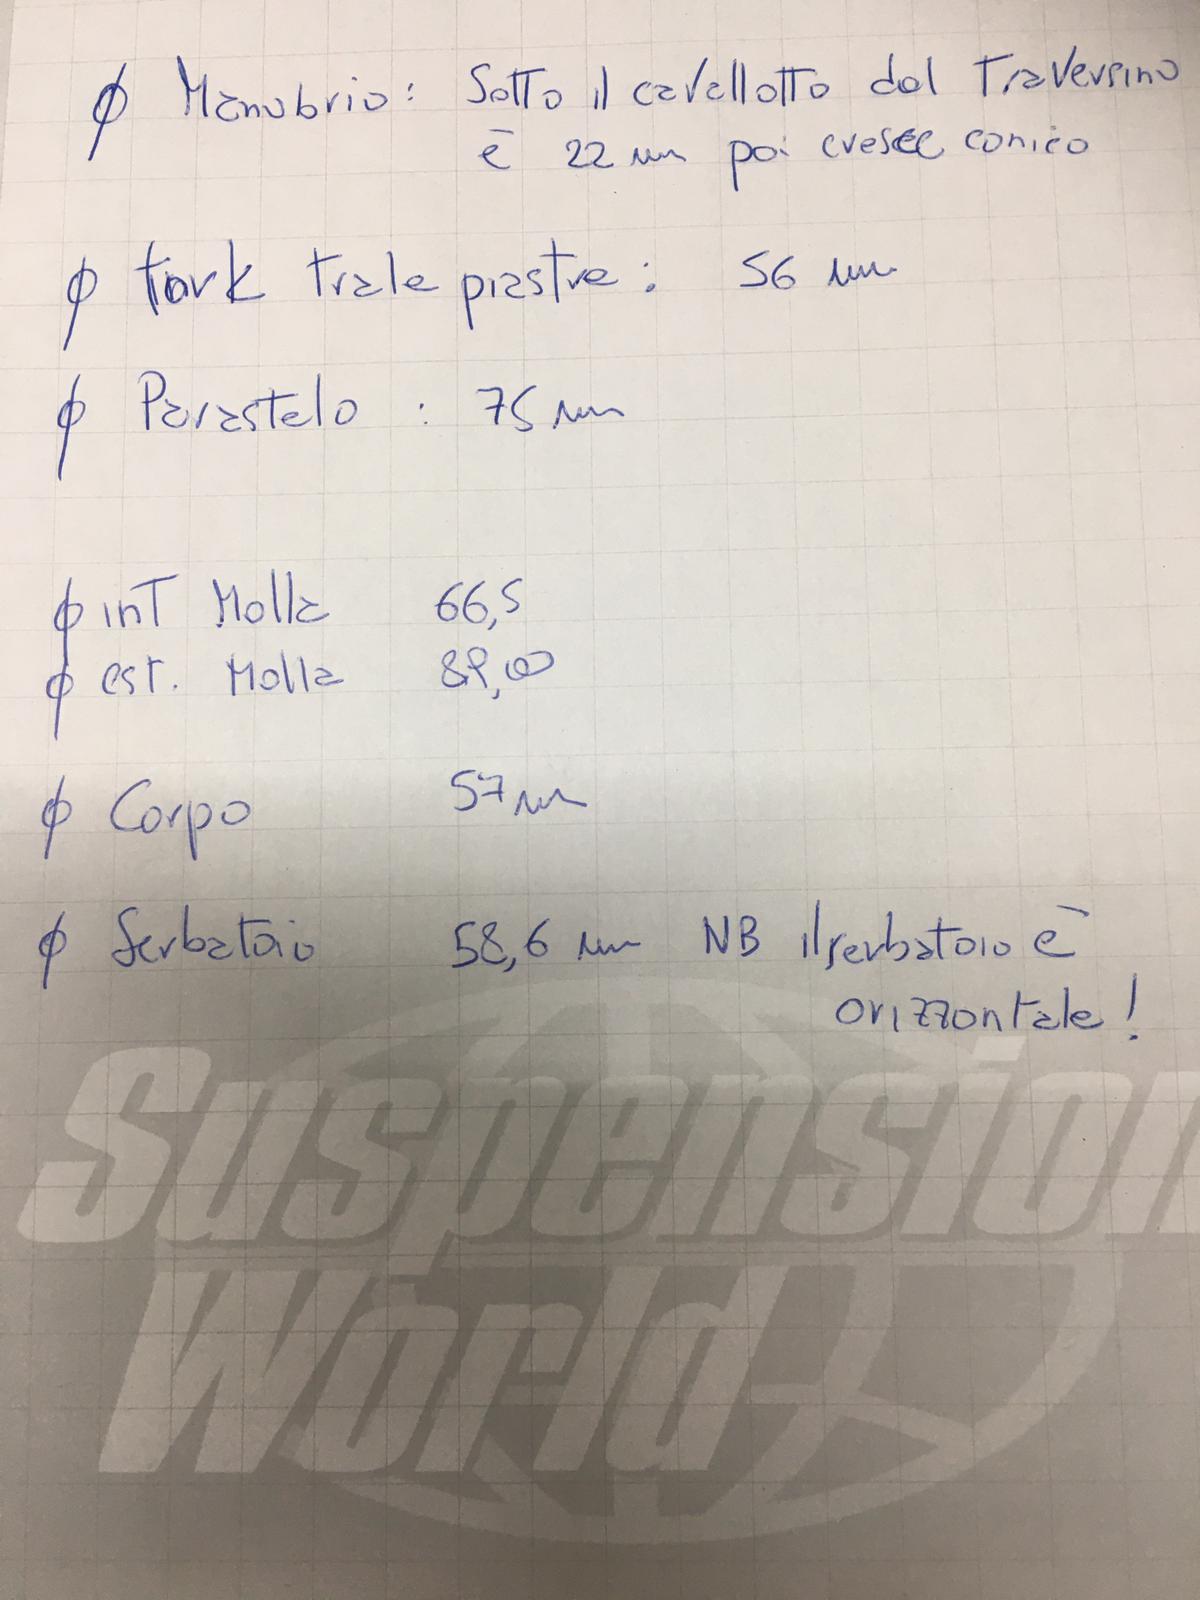 ϕ Manubrio: Sotto il cavallotto del Traversino
è 22 mm poi cresce conico
ϕ fork tra le piastre: 56 mm
ϕ Parastelo : 75 mm
ϕ inT Molla 66,5
ϕ est. Molla 89,00
ϕ Corpo 57 mm
ϕ Serbatoio 58,6 mm NB il serbatoio è
orizzontale!
Suspension
World